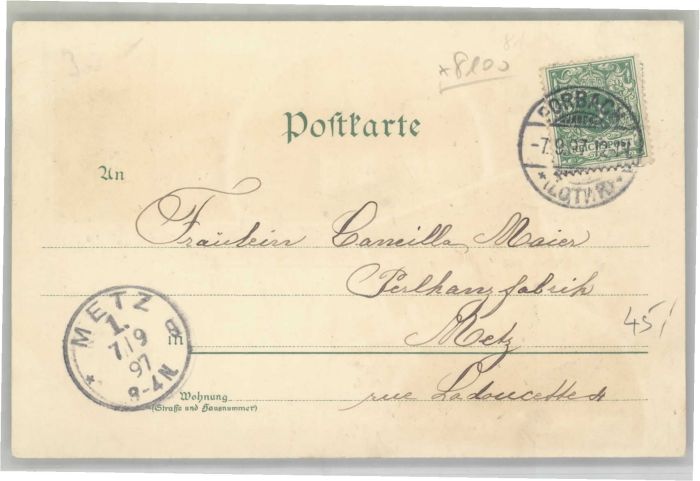 *8100
Postkarte
FORBACH
-7.9.97.12-1N
* (LOTHR.) *
An
Fräulein Camilla Maier
Perlkranzfabrik
in Metz
45/
METZ
1.
7/9
97
3-4N.
* B
Wohnung
(Straße und Hausnummer)
rue Ladoucette 4